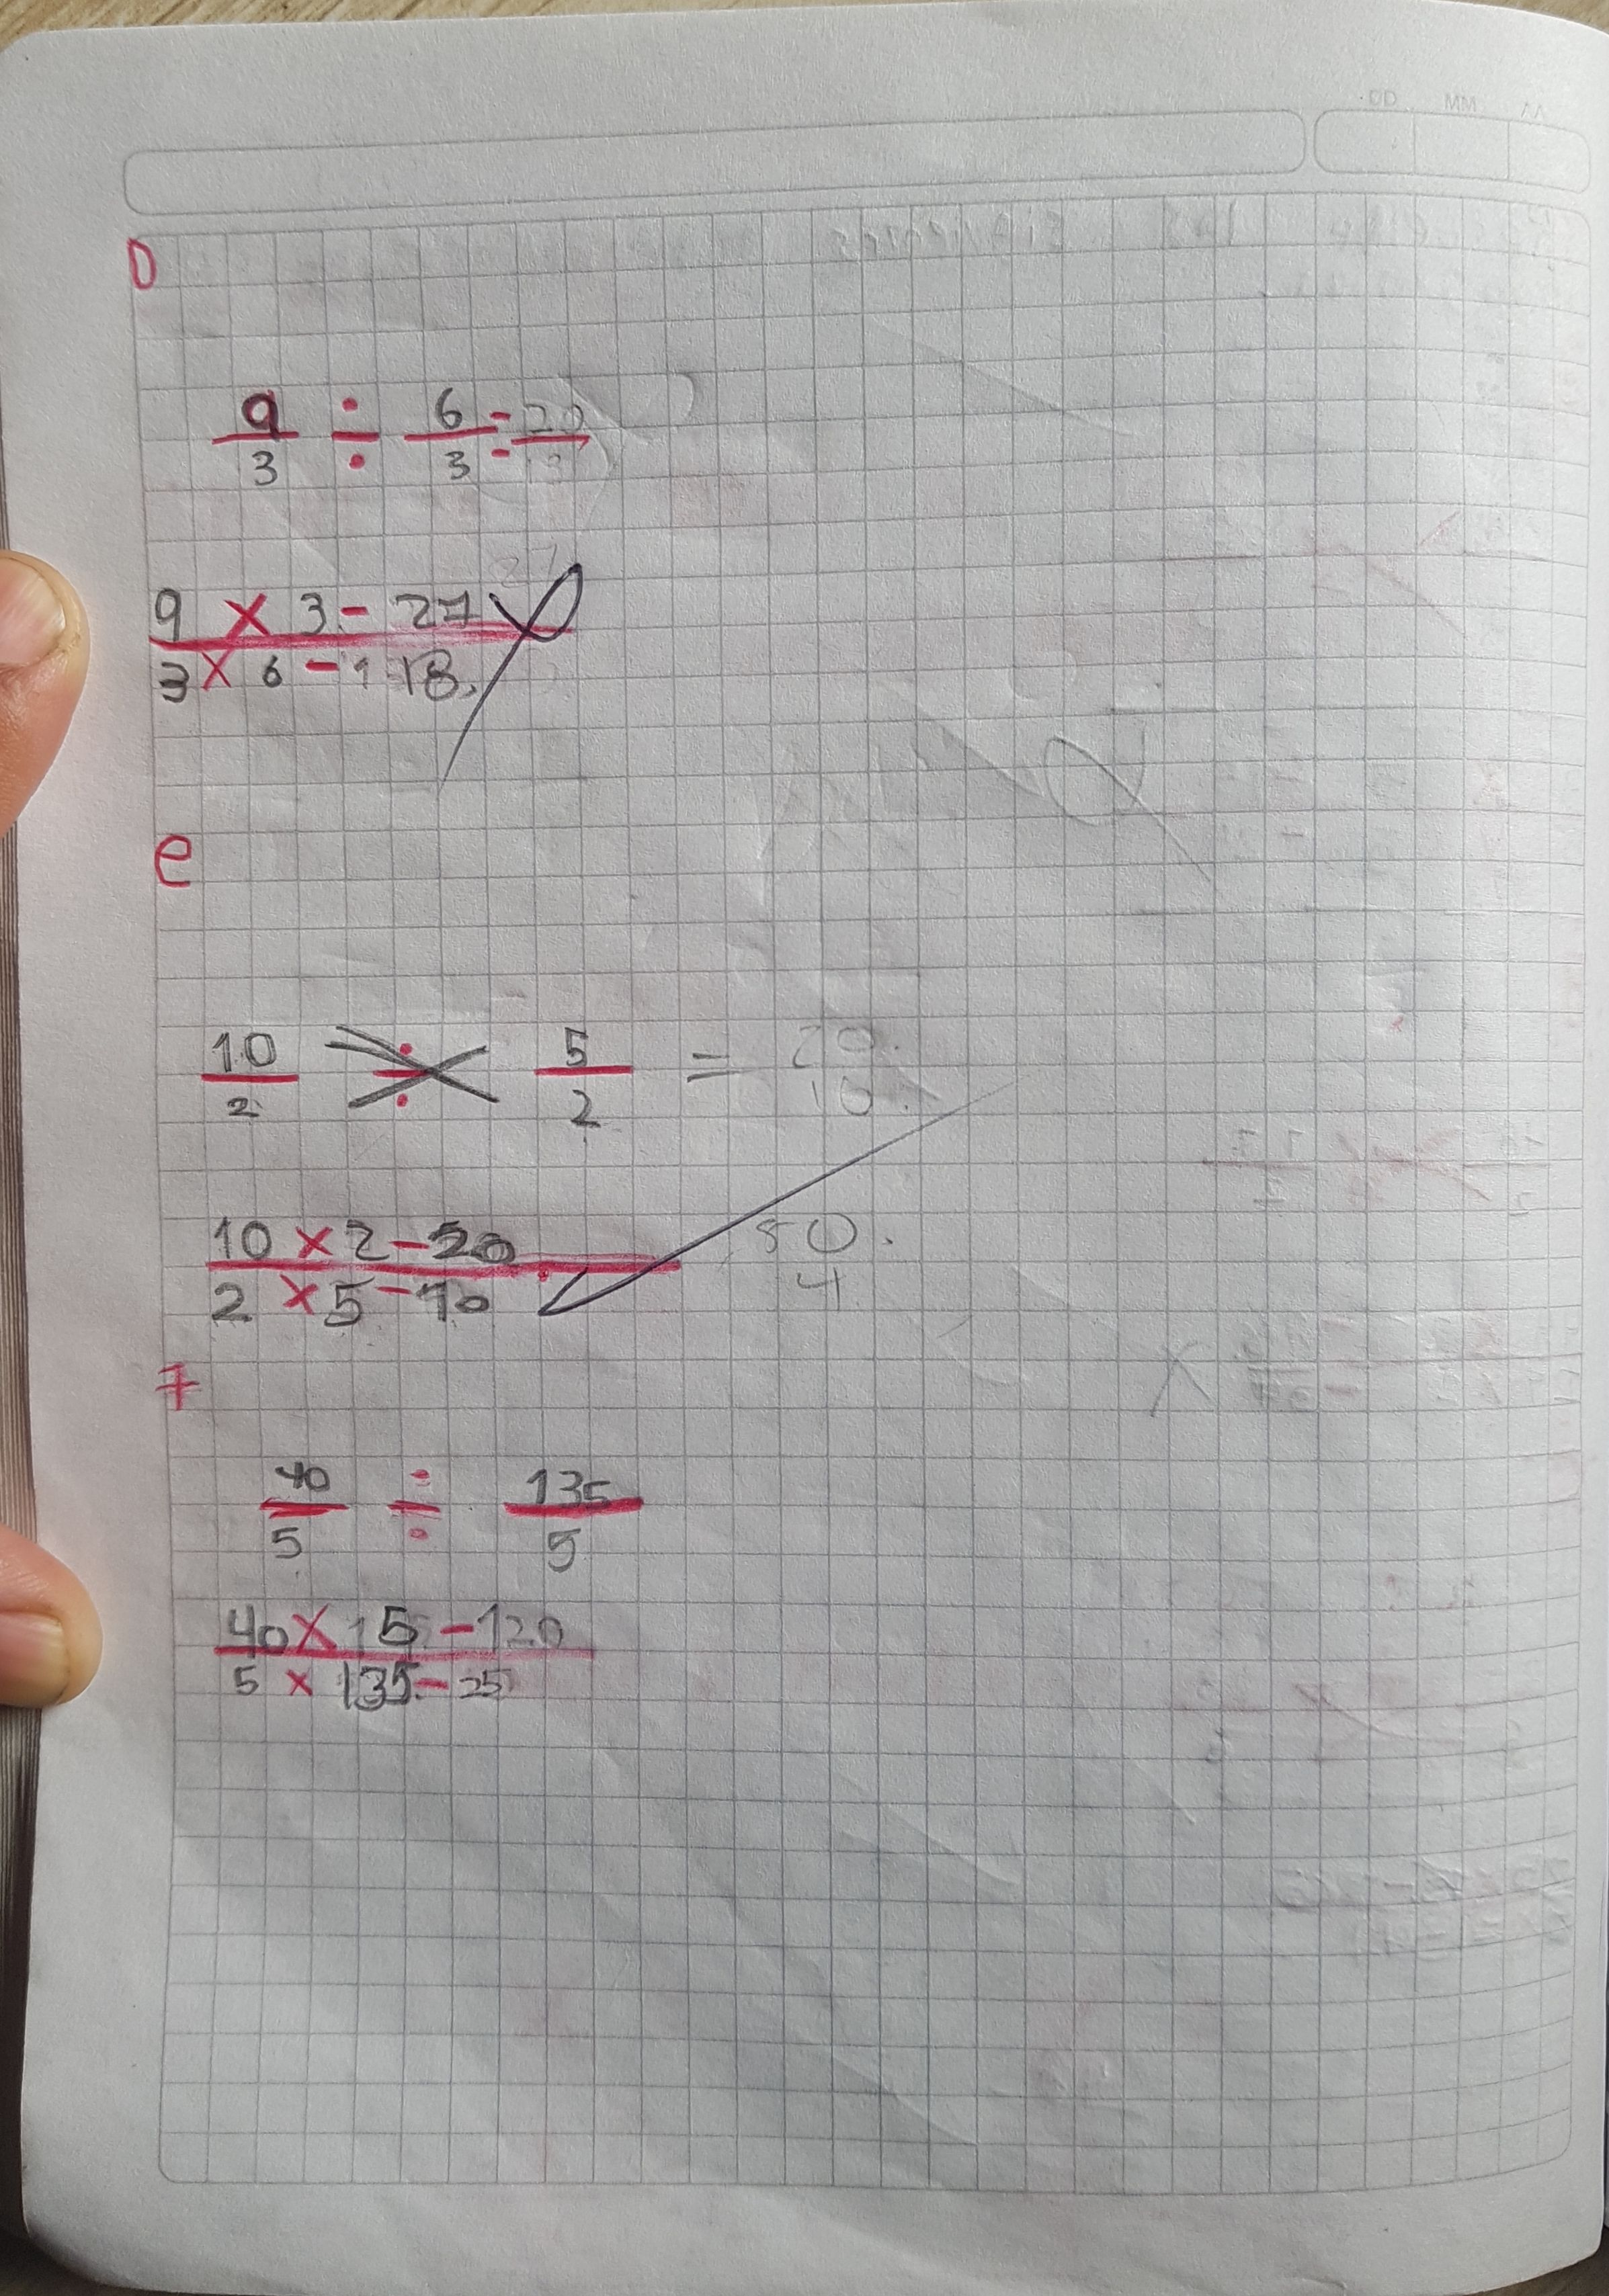 DD MM AA
D
9/3 ÷ 6/3 = 20
9 x 3 - 27
3 x 6 - 18
e
10/2 ÷ 5/2 = 20/10
10 x 2 - 20
2 x 5 - 10
50
4
f
40/5 ÷ 135/5
40 x 15 - 120
5 x 135 - 25